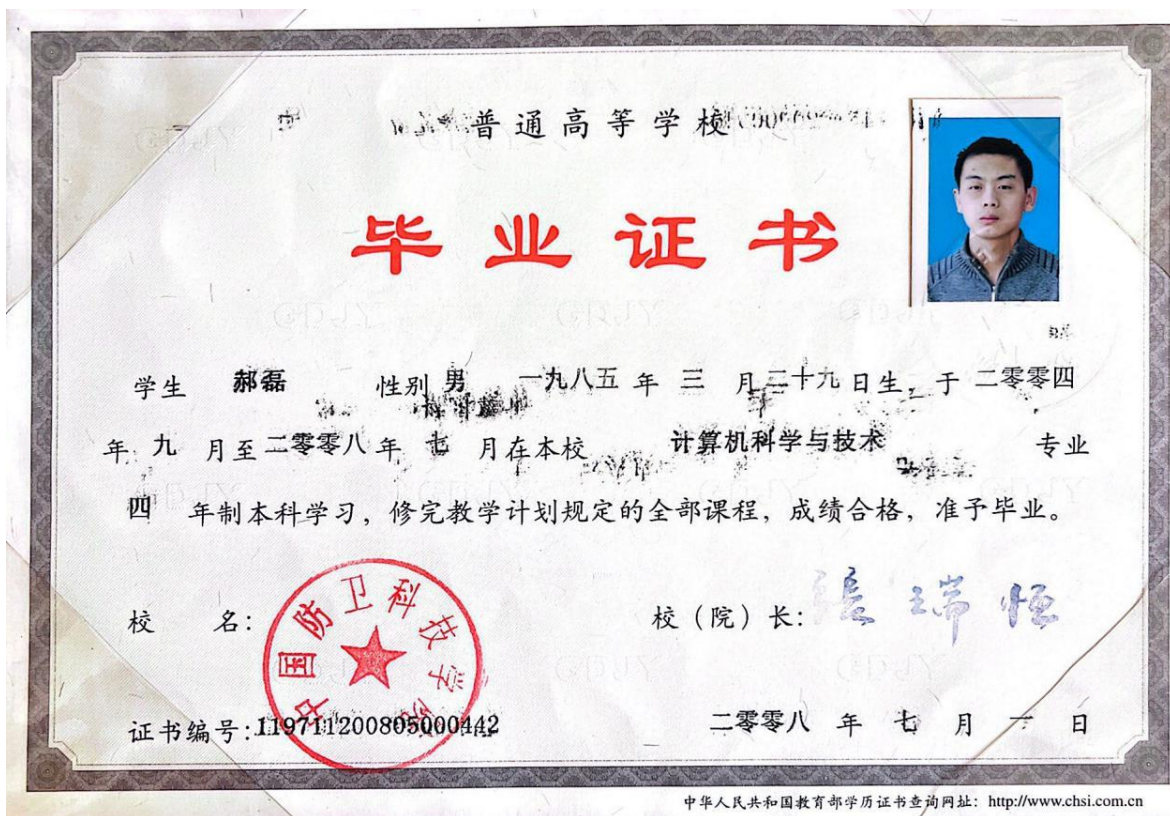 普通高等学校
毕业证书
学生 郝磊 性别 男 一九八五 年 三 月 二十九 日生，于 二零零四
年 九 月至 二零零八 年 七 月在本校 计算机科学与技术 专业
四 年制本科学习，修完教学计划规定的全部课程，成绩合格，准予毕业。
校 名：
中国防卫科技学院
校（院）长：张瑞恒
证书编号：119711200805000442
二零零八 年 七 月 一 日
中华人民共和国教育部学历证书查询网址：http://www.chsi.com.cn